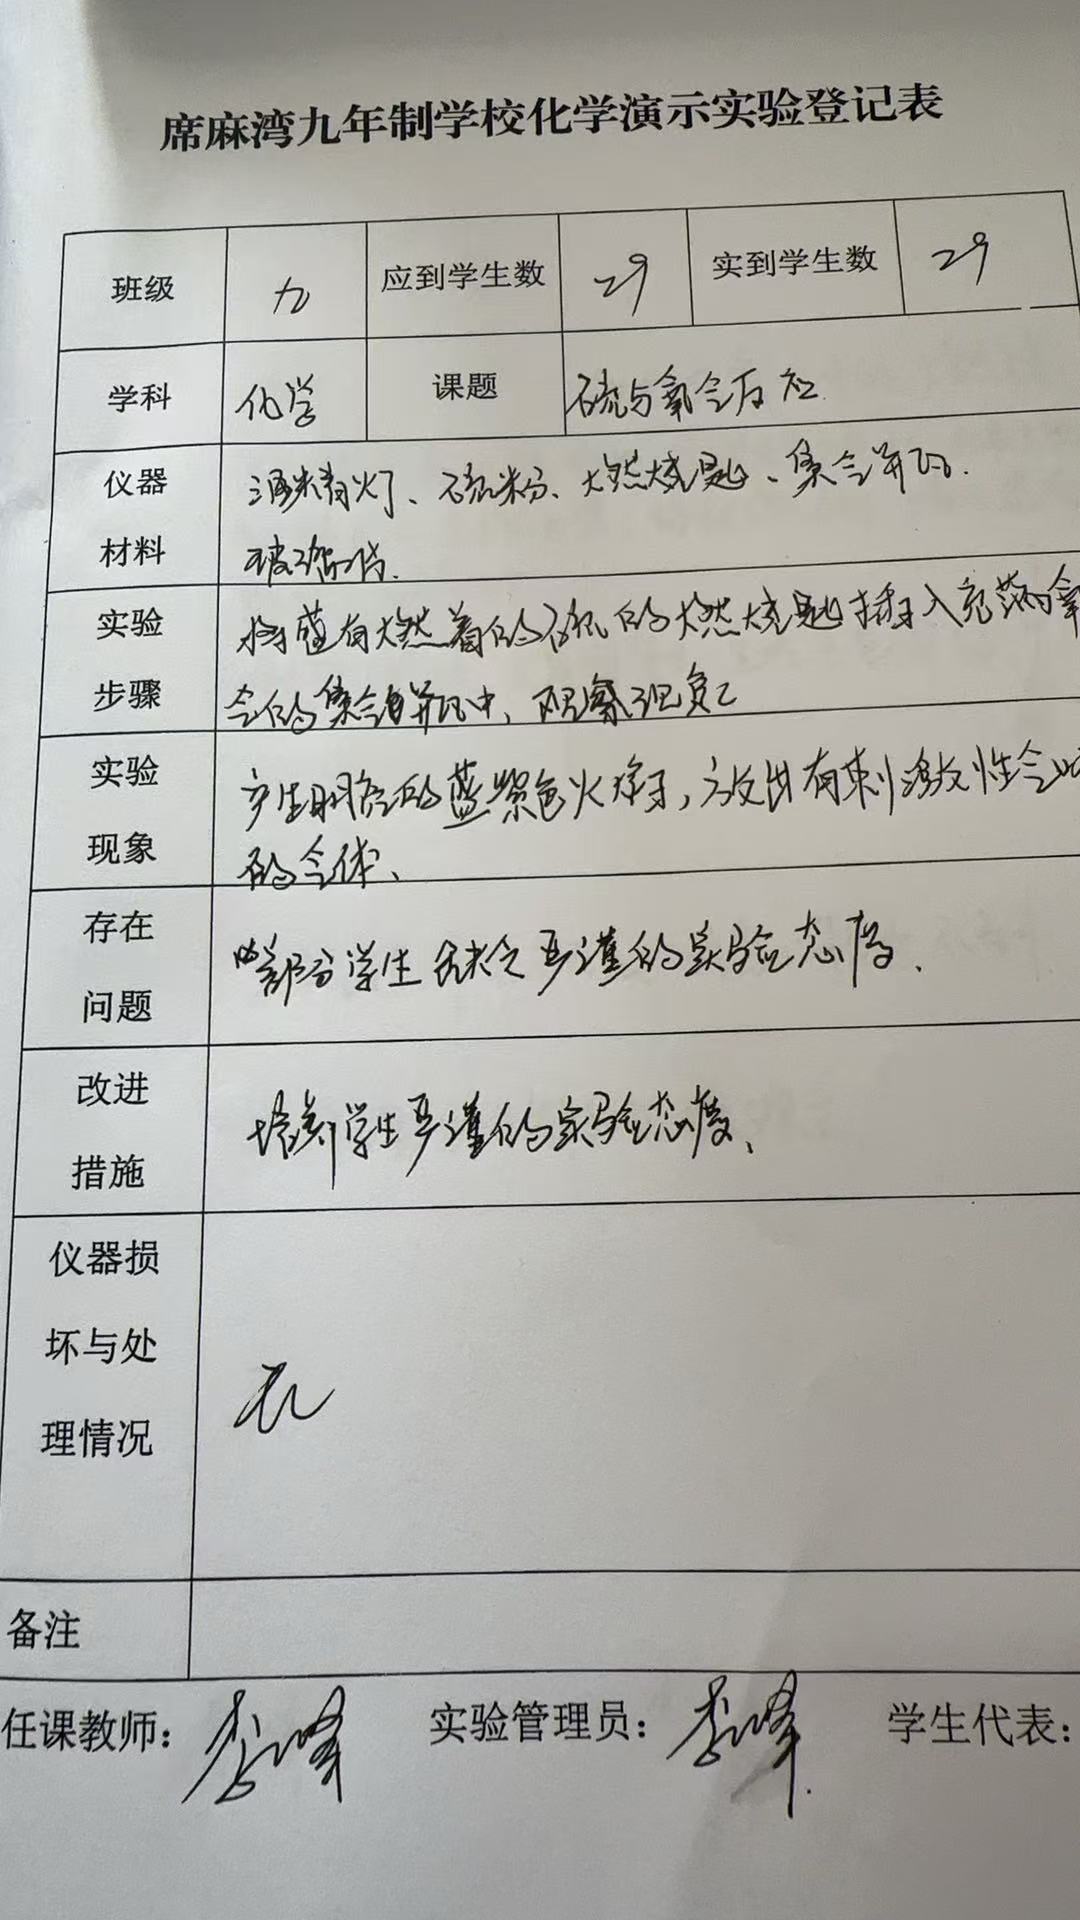 席麻湾九年制学校化学演示实验登记表
班级 九 应到学生数 29 实到学生数 29
学科 化学 课题 硫与氧气反应
仪器 酒精灯、硫粉、燃烧匙、集气瓶
材料 玻璃片
实验 将盛有燃着的硫的燃烧匙插入充满氧
步骤 气的集气瓶中，观察现象
实验 产生明亮的蓝紫色火焰，放出有刺激性气味
现象 的气体、
存在
问题 部分学生缺乏严谨的实验态度、
改进
措施 培养学生严谨的实验态度、
仪器损
坏与处
理情况 无
备注
任课教师：李峰 实验管理员：李峰 学生代表：